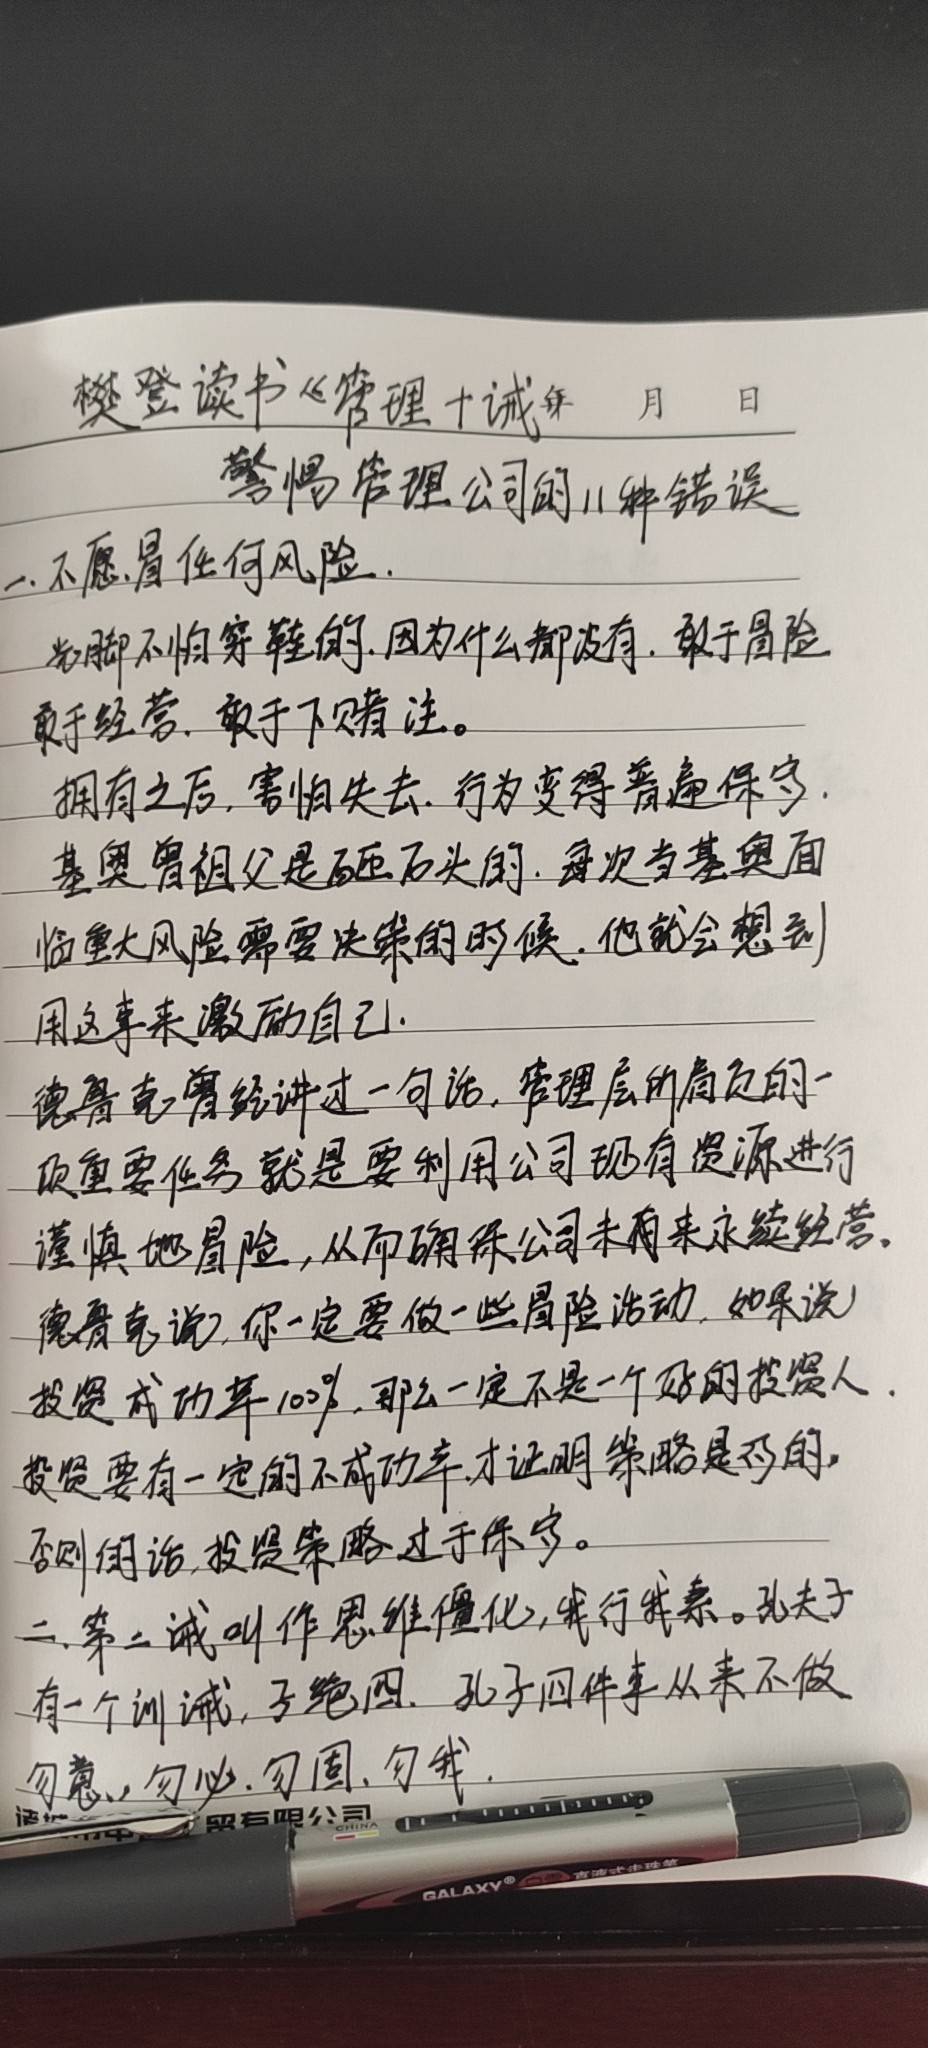 樊登读书《管理十诫 年 月 日
警惕管理公司的11种错误
一.不愿冒任何风险.
光脚不怕穿鞋的.因为什么都没有.敢于冒险
敢于经营.敢于下赌注。
拥有之后.害怕失去.行为变得普遍保守.
基奥曾祖父是砸石头的.每次当基奥面
临重大风险需要决策的时候.他就会想到
用这事来激励自己.
德鲁克曾经讲过一句话,管理层所肩负的一
项重要任务就是要利用公司现有资源进行
谨慎地冒险,从而确保公司未来永续经营。
德鲁克说,你一定要做一些冒险活动.如果说
投资成功率100%,那么一定不是一个好的投资人.
投资要有一定的不成功率.才证明策略是对的。
否则的话,投资策略过于保守。
二.第二诫叫作思维僵化,我行我素。孔夫子
有一个训诫,子绝四.孔子四件事从来不做
勿意、勿必.勿固、勿我.
贸有限公司
CHINA
GALAXY® 直液式走珠笔